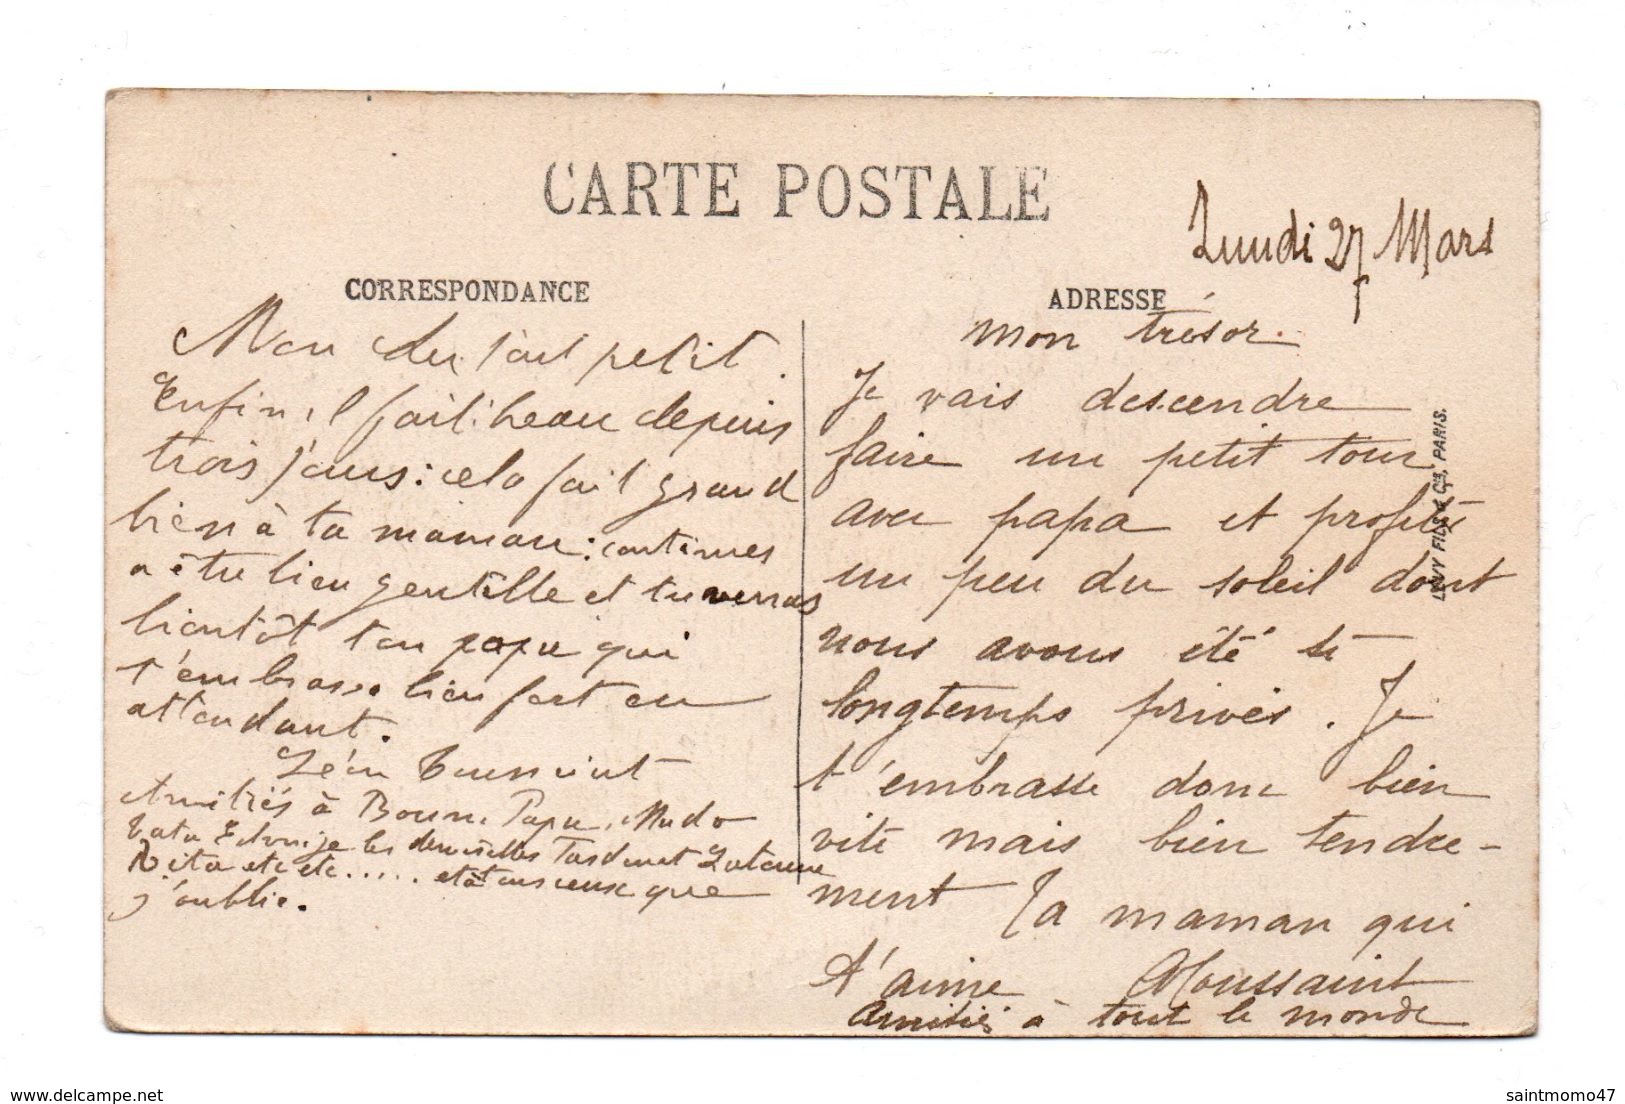 CARTE POSTALE
Lundi 27 Mars
CORRESPONDANCE
Mon petit.
Enfin il fait beau depuis
trois jours: cela fait grand
bien à ta maman: continues
a être bien gentille et tu verras
bientôt ton papa qui
t'embrasse bien fort en
attendant.
Léon Toussaint
Amitiés à Papa,
les demoiselles
etc etc..... et à tous ceux que
j'oublie.
ADRESSE
mon trésor.
Je vais descendre
faire un petit tour
avec papa et profiter
un peu du soleil dont
nous avons été si
longtemps privés. Je
t'embrasse donc bien
vite mais bien tendre-
ment Ta maman qui
t'aime Toussaint
Amitiés à tout le monde
LEVY FILS & Cie, PARIS.
saintmomo47